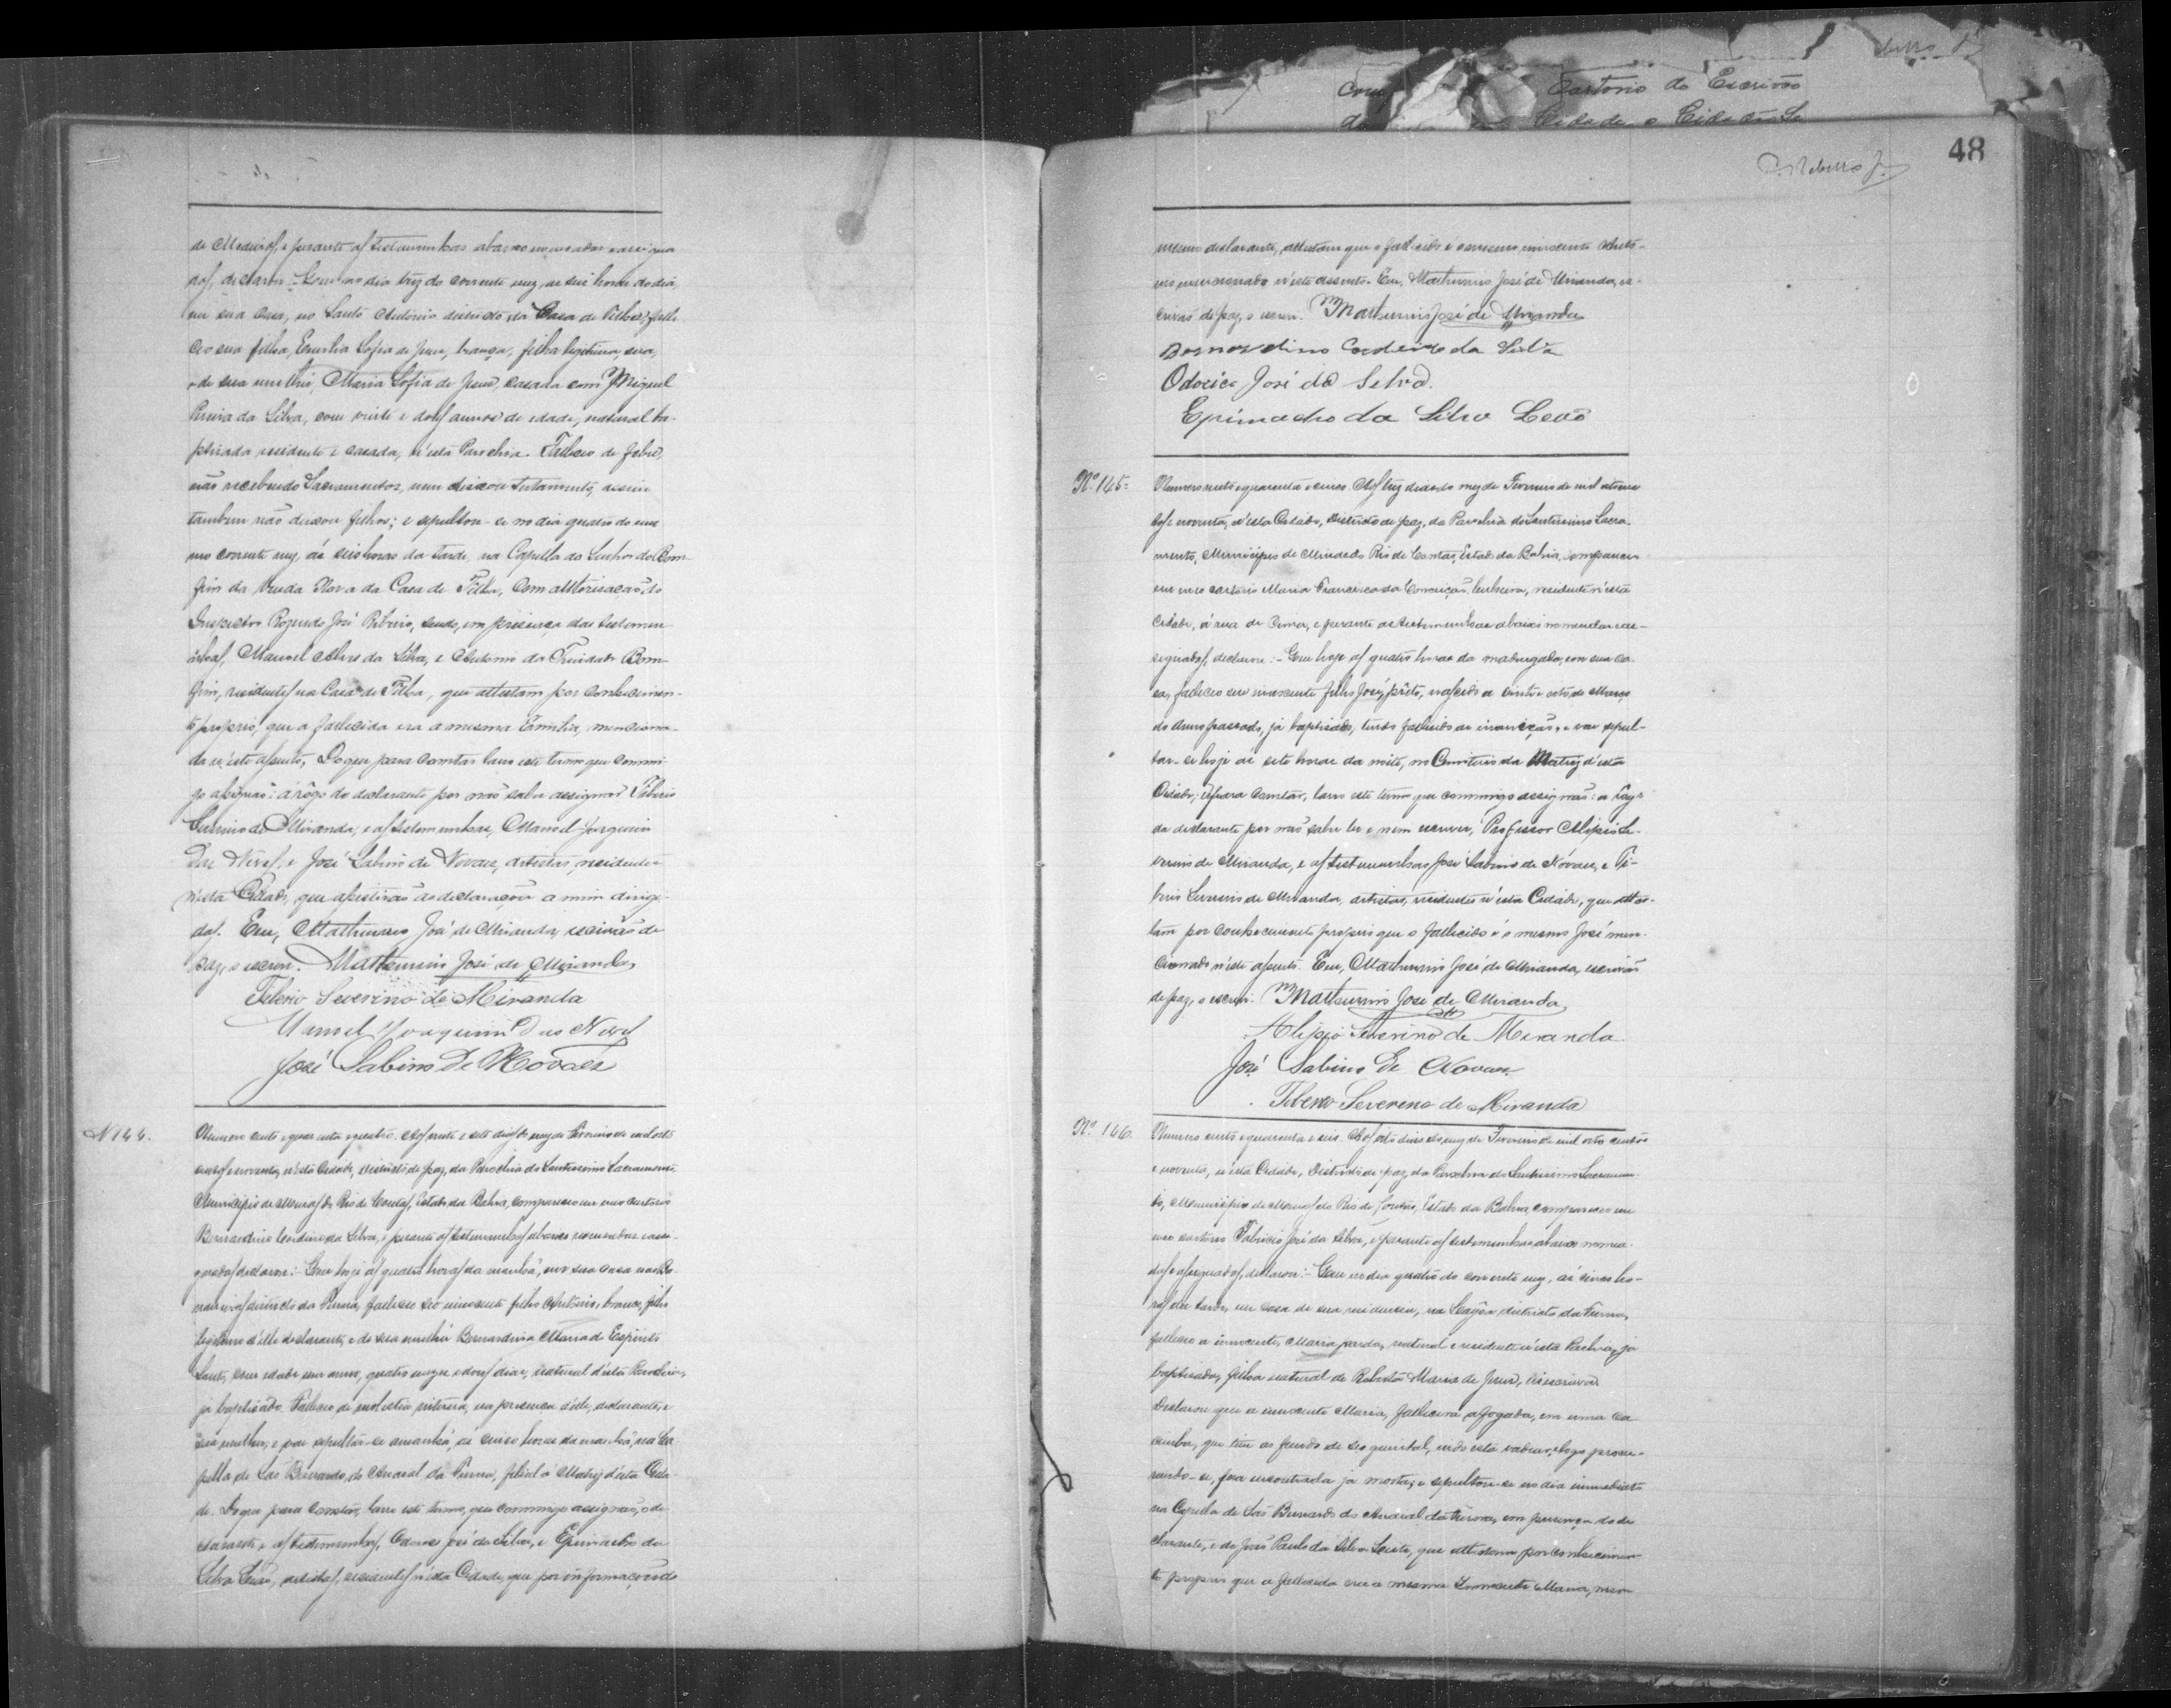 de e perante as testemunhas abaixo nomeadas e assigna
dos, declarou: Que no dia trez do corrente mez, as seis horas do dia,
em sua casa, no Santo Antonio districto da Casa de Telha, falle
ceo sua filha, Emilia Sofia de Jesus, branca, filha legitima, sua,
e de sua mulher, Maria Sofia de Jesus, casada com Miguel
Pereira da Silva, com vinte e dois annos de idade, natural ba-
ptisada residente e casada, n'esta Parochia. Falleceo de febre,
não recebendo Sacramentos, nem deixou testamento, assim
tambem não deixou filhos; e sepultou-se no dia quatro do mes
mo corrente mez, ás seis horas da tarde, na Capella do Senhor do Bom-
fim da Nova da Casa de Telha, com authorisação do
Inspector Rozendo José Ribeiro, sendo, em presença das testemu
nhas, Manoel Alves da Silva, e Antonio da Trindade Bom-
fim, residentes na Casa de Telha, que attestam por conhecimen-
to proprio, que a fallecida era a mesma Emilia, menciona-
da n'este assento, Do que para constar lavro este termo que commi
go assignão: á rôgo do declarante por não saber assignar Tiberio
Severino de Miranda, e as testemunhas, Manoel Joaquim
Das Neves, e José Sabino de Novaes, artistas, residentes
n'esta Cidade, que assistirão as declarações a mim dirigi
das. Eu, Mathurino José de Miranda, escrivão de
paz, o escrevi. Mathurino José de Miranda
Tiberio Severino de Miranda
Manoel Joaquim Das Neves
José Sabino De Novaes
N 144.
Numero cento e quarenta e quatro. Aos vinte e sete dias do mez de Fevereiro de mil oito
centos e noventa, n'esta Cidade, districto de paz, da Parochia do Santissimo Sacramento,
Municipio de Minas do Rio de Contas, Estado da Bahia, compareceo em meo cartorio
Bernardino Cordeiro da Silva, e perante as testemunhas abaixo nomeadas e assi-
gnados, declarou: Que hoje as quatro horas da manhã, em sua casa
districto da Furna, falleceo seo innocente filho Antonio, branco, filho
legitimo d'elle declarante, e de sua mulher Bernardina Maria do Espirito
Santo, com idade um anno, quatro mezes e dous dias, natural d'esta Parochia,
ja baptisado. Falleceo de molestia interna, em presença d'elle, declarante, e
sua mulher; e vae sepultar-se amanhã, as cinco horas da manhã, na Ca
pella de São Bernardo, do Arraial da Furna, filial á Matriz d'esta Cida-
de. Do que para constar, lavro este termo, que commigo assignão, o de-
clarante, e as testemunhas, Odorico José da Silva, e Epimacho da
Silva Leão, artistas, residentes n'esta Cidade, que por informações do
48
mesmo declarante, attestam que o fallecido é o mesmo innocente Anto-
nio mencionado n'este assento. Eu, Mathurino José de Miranda, es-
crivão de paz, o escrevi. Mathurino José de Miranda
Bernardino Cordeiro da Silva
Odorico José da Silva.
Epimacho da Silva Leão
Nº 145.
Numero cento e quarenta e cinco. Aos trez dias do mez de Fevereiro de mil oitocen
tos e noventa, n'esta Cidade, districto de paz, da Parochia do Santissimo Sacra-
mento, Municipio de Minas do Rio de Contas, Estado da Bahia, compareceo
em meo cartorio Maria Francisca da Conceição, residente n'esta
Cidade, á rua de Cima, e perante as testemunhas abaixo nomeadas e as-
signados, declarou: Que hoje as quatro horas da madrugada, em sua ca-
sa, falleceo seu innocente filho José, prêto, nascido a vinte e oito de Março
do anno passado, já baptisado, tendo fallecido de inanição, e vae sepul-
tar-se hoje as sete horas da noite, no Cemiterio da Matriz d'esta
Cidade; e para constar, lavro este termo que commigo assignão: a rogo
da declarante por não saber ler e nem escrever, Professor Alipio Se-
verino de Miranda, e as testemunhas José Sabino de Novaes, e Ti-
berio Severino de Miranda, artistas, residentes n'esta Cidade, que attes-
tam por conhecimento proprio que o fallecido é o mesmo José men-
cionado n'este assento. Eu, Mathurino José de Miranda, escrivão
de paz, o escrevi. Mathurino José de Miranda
Alipio Severino de Miranda
José Sabino De Novaes
Tiberio Severino de Miranda
Nº 146.
Numero cento e quarenta e seis. Aos oito dias do mez de Fevereiro de mil oito centos
e noventa, n'esta Cidade, Districto de paz, da Parochia do Santissimo Sacramen
to, Municipio de Minas do Rio de Contas, Estado da Bahia, compareceo em
meo cartorio Fabricio José da Silva, e perante as testemunhas abaixo nomea
dos e assignados, declarou: Que no dia quatro do corrente mez, as cinco ho-
ras da tarde, em casa de sua residencia, na Lagôa districto da Furna,
falleceo a innocente, Maria, parda, natural e residente n'esta Parochia, ja
baptisada, filha natural de Roberta Maria de Jesus,
Declarou que a innocente Maria, fallecera afogada, em uma ca
cimba, que tem ao fundo de seo quintal, logo procu-
rando-se, fora encontrada ja morta; e sepultou-se no dia immediato
na Capella de São Bernardo do Arraial da Furna, em presença do de
clarante, e de João Paulo da Silva Leite, que attestam por conhecimen-
to proprio que a fallecida era a mesma Innocente Maria, men